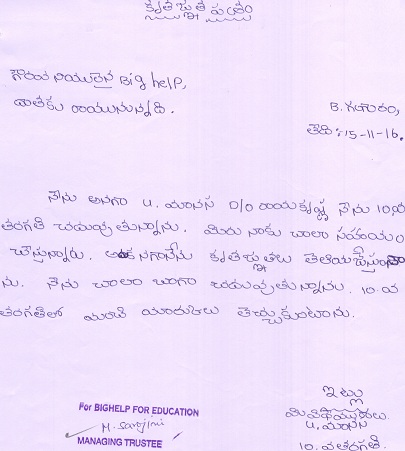 కృతజ్ఞత పత్రం
గౌరవనీయులైన Big help,
వ్రాయునున్నది.
B. గంగారం,
తేది: 15-11-16.
నేను అనగా U. మానస D/o రామకృష్ణ నేను 10వ
తరగతి చదువుతున్నాను. మీరు నాకు చాలా సహాయం
చేస్తున్నారు. కృతజ్ఞతలు తెలియచేస్తున్నా
ను. నేను చాలా బాగా చదువుతున్నాను. 10.వ
తరగతిలో మంచి మార్కులు తెచ్చుకుంటాను.
ఇట్లు
మీ విధేయురాలు.
U. మానస
10. వ తరగతి.
For BIGHELP FOR EDUCATION
M. Sarojini
MANAGING TRUSTEE